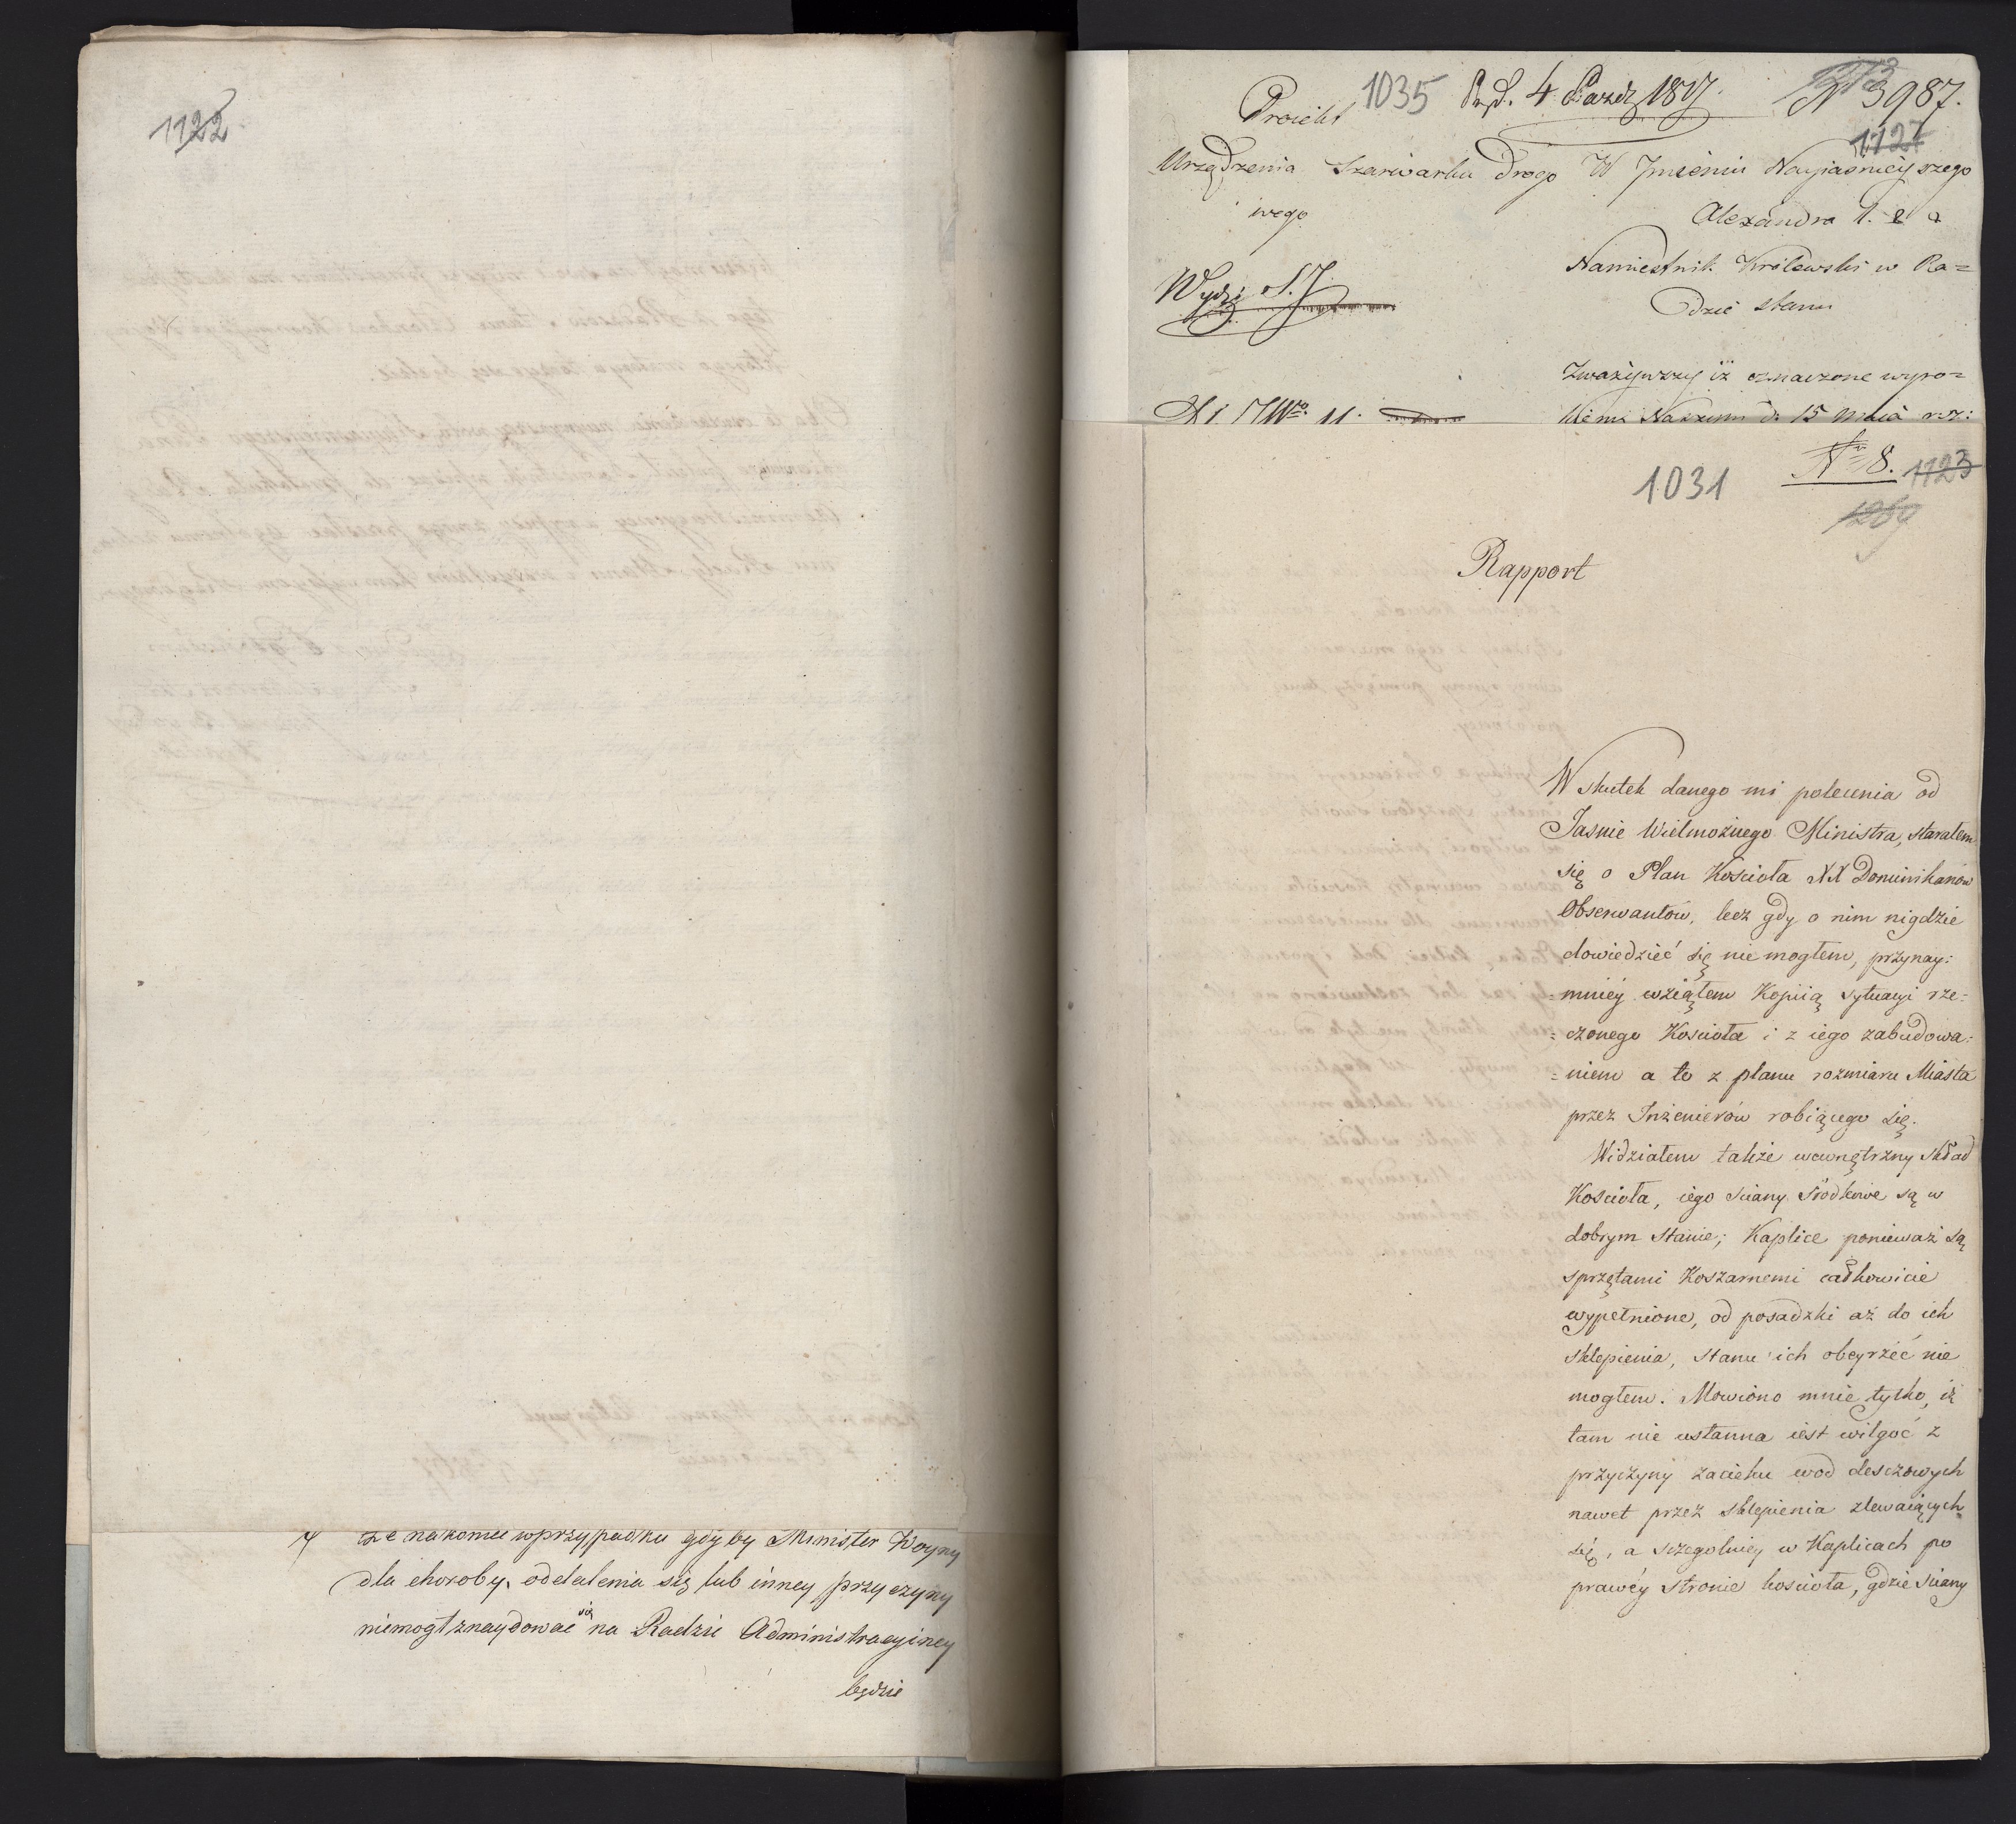 1122
że nakoniec w przypadku gdyby Minister Woyny
dla choroby, oddalenia się lub inney przyczyny
niemogł znaydować się na Radzie Administracyiney
będzie
Proiekt
1035
4 Pazdz 1817.
N 3987.
1127
Urządzenia Szarwarku Drogo
wego
W Jmieniu Nayiaśnieyszego
Alexandra 1.
Namiestnik Królewski w Ra=
dzie stanu
Zważywszy iż oznaczone wyro=
kiem Naszem d. 15 Maia r. z:
1031
No 8.
1123
1269
Rapport
W skutek danego mi polecenia od
Jasnie Wielmożnego Ministra, starałem
się o Plan Kościoła XX Dominikanów
Obserwantów, lecz gdy o nim nigdzie
dowiedzieć się nie mogłem, przynay:
=mniéy wziąłem Kopiią sytuacyi rze=
=czonego Kościoła i z iego zabudowa=
=niem a to z planu rozmiaru Miasta
przez Inżenierów robiącego się.
Widziałem także wewnętrzny skład
Kościoła, iego sciany środkowe są w
dobrym stanie; Kaplice ponieważ są
sprzętami Koszarnemi całkowicie
wypełnione, od posadzki aż do ich
sklepienia, stanu ich obeyrzéć nie
mogłem. Mowiono mnie tylko, iż
tam nie ustanna iest wilgoć z
przyczyny zacieku wod desczowych
nawet przez sklepienia zlewaiących
się, a sczegolniey w Kaplicach po
prawéy stronie kościoła, gdzie sciany